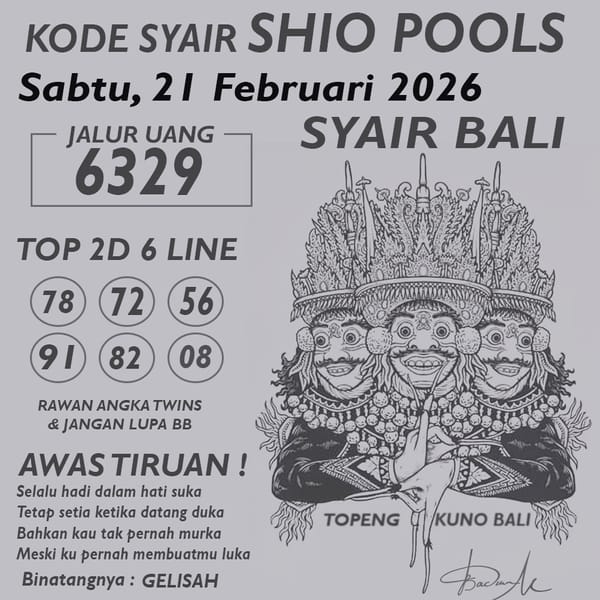 KODE SYAIR SHIO POOLS
Sabtu, 21 Februari 2026
JALUR UANG
6329
SYAIR BALI
TOP 2D 6 LINE
78 72 56
91 82 08
RAWAN ANGKA TWINS
& JANGAN LUPA BB
AWAS TIRUAN !
Selalu hadi dalam hati suka
Tetap setia ketika datang duka
Bahkan kau tak pernah murka
Meski ku pernah membuatmu luka
Binatangnya : GELISAH
TOPENG KUNO BALI